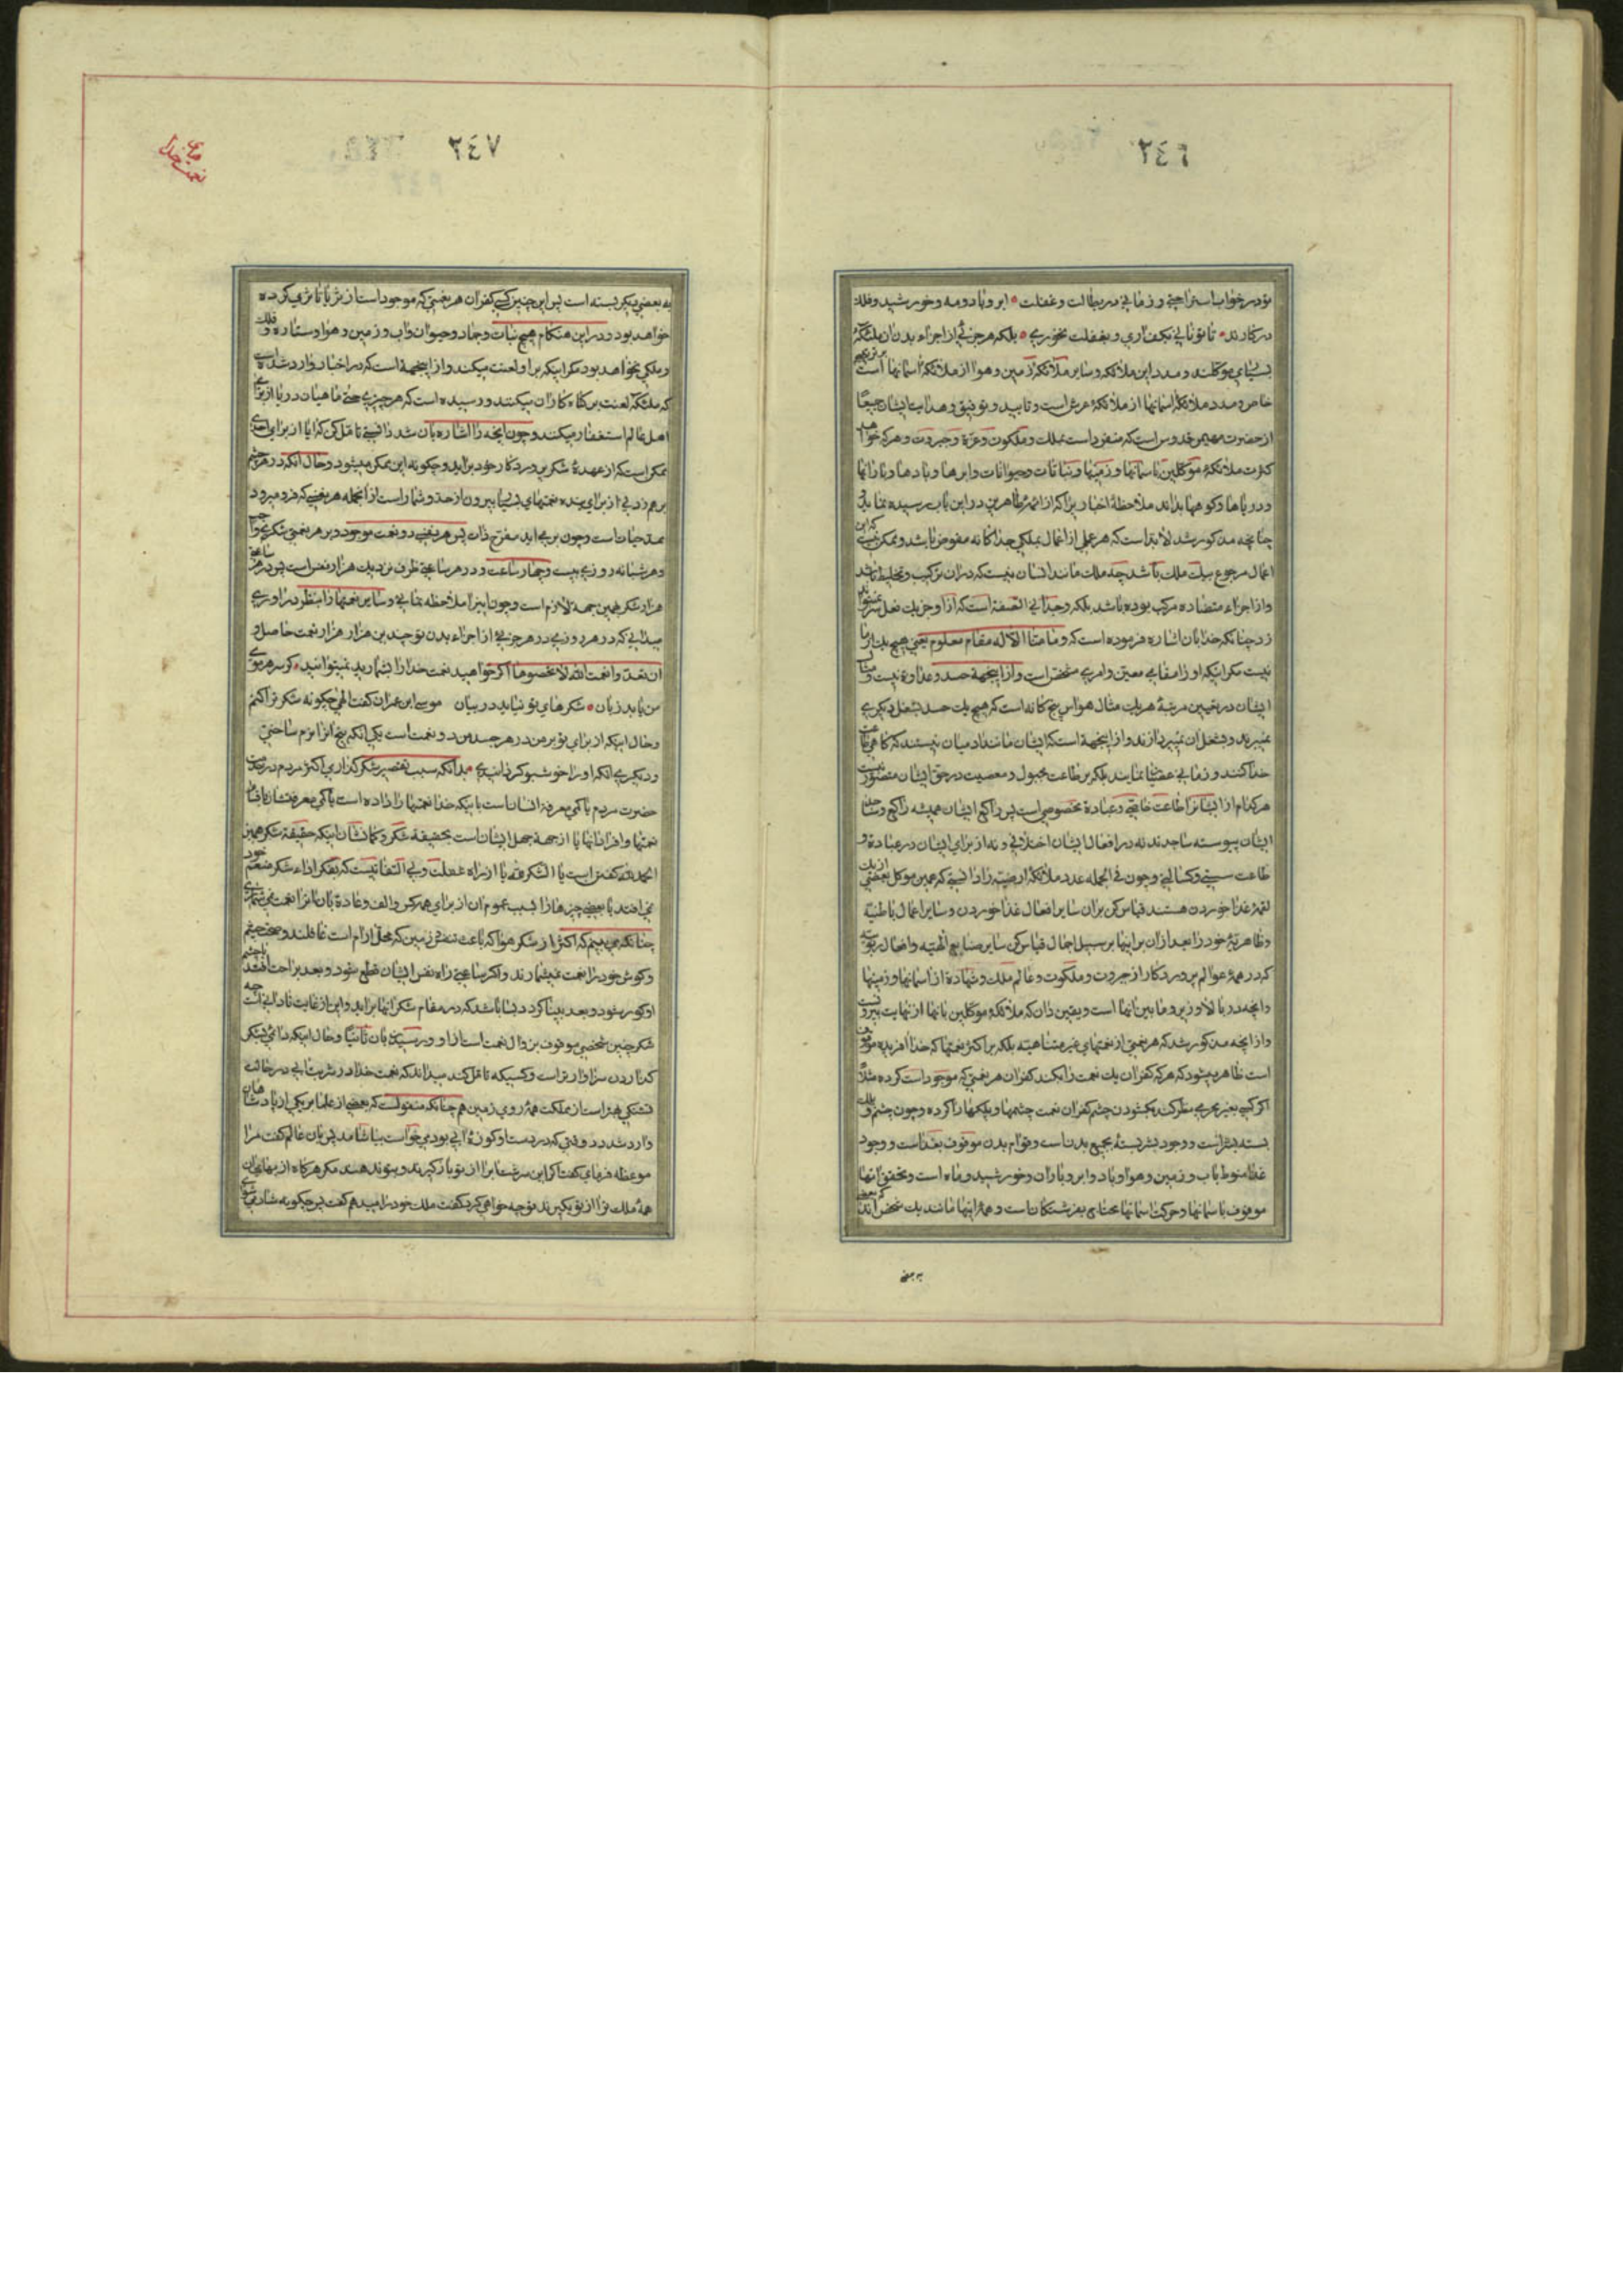 ٢٤٦
تو در خواب استراحتی و زمانی در بطالت و غفلت ابر و باد و مه و خورشید و فلک
در کارند تا تو نانی بکف آری و بغفلت نخوری بلکه هر جزئی از اجزاء بدن از ملئکهٔ
بسیاری موکلند و مدد این ملائکه و سایر ملائکهٔ زمین و هوا از ملائکهٔ آسمانها است
خاص و مدد ملائکهٔ آسمانها از ملائکهٔ عرش است و تایید و توفیق و هدایت ایشان جمیعا
از حضرت مهیمن قدوس است که منفرد است بملک و ملکوت و عزة و جبروت و هر که خواهد
کثرت ملائکهٔ موکلین باسمانها و زمینها و نباتات و حیوانات و ابرها و بادها و بارانها
و دریاها و کوهها بداند ملاحظهٔ اخبار را که از ائمهٔ طاهرین در این باب رسیده نماید
چنانچه مذکور شد لابد است که هر عملی از اعمال بملکی جداگانه مفوض باشد و ممکن نیست که این
اعمال مرجوع بیک ملک باشد چه ملک مانند انسان نیست که در ان ترکیب و تخلیط باشد
و از اجزاء متضاده مرکب بوده باشد بلکه وحدانی الصفة است که از او جز یک فعل سر نمیتواند
زد چنانکه خدا بان اشاره فرموده است که و ما منا الا له مقام معلوم یعنی هیچ یک از ما
نیست مگر اینکه او را مقامی معین و امری مشخص است و از اینجهة حسد و عداوة نیست و مثال
ایشان در تعیین مرتبهٔ هر یک مثال حواس پنج کانه است که هیچ یک حسد بشغل دیگری
نمیبرند و بشغل ان نمیپردازند و از اینجهة است که ایشان مانند ادمیان نیستند که گاهی طاعت
خدا کنند و زمانی عصیان نمایند بلکه بر طاعت مجبول و معصیت در حق ایشان متصور نیست
هر کدام از ایشانرا طاعت خاصی و عبادة مخصوصی است پس راکع ایشان همیشه راکع و ساجد
ایشان پیوسته ساجدند نه در افعال ایشان اختلافی و نه از برای ایشان در عبادة و
طاعت سستی و کسالتی و چون فی الجمله عدد ملائکهٔ ارضیه را دانستی که همین موکل بعضی از یک
لقمهٔ غذا خوردن هستند قیاس کن بران سایر افعال غذا خوردن و سایر اعمال باطنیه
و ظاهریهٔ خود را بعد از ان بر اینها بر سبیل اجمال قیاس کن سایر صنایع الهیه و افعال ربوبیه
که در همهٔ عوالم پروردگار از جبروت و ملکوت و عالم ملک و شهادة از آسمانها و زمینها
و انچه در بالا و زیر و ما بین انها است و یقین دان که ملائکهٔ موکلین بانها از نهایت بیرونست
و از انچه مذکور شد که هر نعمتی از نعمتهای غیر متناهیه بلکه بر اکثر نعمتها که خدا افریده موقوف
است ظاهر میشود که هر که کفران یک نعمت را بکند کفران هر نعمتی که موجود است کرده مثلا
اگر کسی بغیر محرمی نظر کند بگشودن چشم کفران نعمت چشمها و پلکها را کرده و چون چشم و پلک
بسته بسر است و وجود سر بسته بجمیع بدن است و قوام بدن موقوف بغذا است و وجود
غذا منوط باب و زمین و هوا و باد و ابر و باران و خورشید و ماه است و تحقق انها
موقوف باسمانها و حرکت اسمانها محتاج بفرشتگان است و همهٔ اینها مانند یک شخص اند که بعضی
به بعضی
٢٤٧
منابع نعمت خدا
به بعضی دیگر بسته است پس این چنین کسی کفران هر نعمتی که موجود است از ثریا تا ثری کرده
خواهد بود و در این هنگام هیچ نبات و جماد و حیوان و اب و زمین و هوا و ستاره و فلک
و ملکی نخواهد بود مگر اینکه بر او لعنت میکند و از اینجهة است که در اخبار وارد شده است
که ملئکه لعنت بر گناه کاران میکنند و رسیده است که هر چیزی حتی ماهیان دریا از برای
اهل عالم استغفار میکنند و چون انچه را اشاره بان شد دانستی تامل کن که ایا از برای احدی
ممکن است که از عهدهٔ شکر پروردگار خود براید و چگونه این ممکن میشود و حال آنکه در هر چشم
بر هم زدنی از برای بنده نعمتهای بسیار بیرون از حد و شمار است از انجمله هر نفسی که فرو میرود
ممد حیات است و چون بر می اید مفرح ذات پس هر نفسی دو نعمت موجود و بر هر نعمتی شکری واجب
و هر شبانه روزی بیست و چهار ساعت و در هر ساعتی ظرف نزدیک هزار نفس است پس در هر ساعتی
هزار شکر بهمین جهة لازم است و چون اینرا ملاحظه نمائی و سایر نعمتها را بنظر در اوری
میدانی که در هر روزی در هر جزئی از اجزاء بدن تو چندین هزار هزار نعمت حاصل و
ان تعدوا نعمت الله لا تحصوها اگر خواهید نعمت خدا را بشمارید نمیتوانید گر سر هر موی
من یابد زبان شکرهای تو نیاید در بیان موسی ابن عمران گفت الهی چگونه شکر ترا کنم
و حال اینکه از برای تو بر من در هر جسد من دو نعمت است یکی انکه بیخ انرا نرم ساختی
و دیگری انکه او را خوشبو گردانیدی بدانکه سبب تقصیر شکر گذاری اکثر مردم در خدمت
حضرت مریم یا کمی معرفة انسان است باینکه خدا نعمتها را داده است یا کمی معرفتشان باقسام
نعمتها و افراد انها یا از جهة جهل ایشان است بحقیقة شکر و گمانشان اینکه حقیقة شکر همین
الحمد لله گفتن است یا الشکر لله یا از راه غفلت و بی التفاتیست که بفکر اداء شکر منعم خود
نمی افتند یا بعضی چیزها را بسبب عموم ان از برای همه کس و الف و عادة بان انرا نعمت نمی شمارند
چنانکه می بینیم که اکثر از شکر هوا که باعث تنفس و زمین که محل ارام است غافلند و صحت چشم
و گوش خود را نعمت نمیشمارند و اگر ساعتی راه نفس ایشان قطع شود و بعد براحت افتند یا چشم
او کور شود و بعد بینا گردد بسا باشد که در مقام شکر انها براید و این از غایت نادانی است چه
شکر چنین شخصی موقوف بزوال نعمت است از او و رسیدن بان ثانیا و حال اینکه دائمی بشکر
گذاردن سزاوارتر است و کسیکه تامل کند میداند که نعمت خدا در شربت ابی در حالت
تشنگی بهتر است از مملکت همهٔ روی زمین هم چنانکه منقولست که بعضی از علما بر یکی از پادشاهان
وارد شد در وقتی که در دست او کوزهٔ ابی بود می خواست بیاشامد پس بان عالم گفت مرا
موعظه فرمای گفت اگر این شربت اب را از تو بازگیرند و بتو ندهند مگر هر گاه از بهای ان
همهٔ ملک ترا از تو بگیرند تو چه خواهی کرد گفت ملک خود را میدهم گفت پس چگونه شاد میشوی